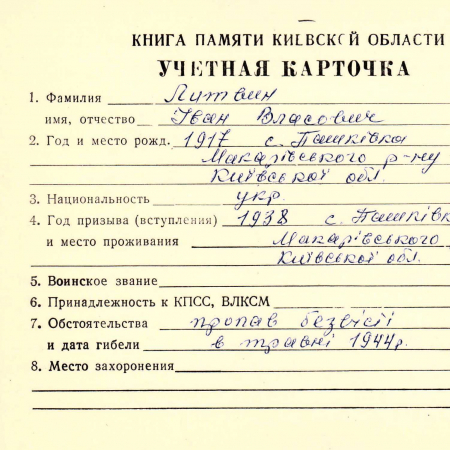 КНИГА ПАМЯТИ КИЕВСКОЙ ОБЛАСТИ
УЧЕТНАЯ КАРТОЧКА
1. Фамилия Литвин
имя, отчество Іван Власович
2. Год и место рожд. 1917 с. Пашківка
Макарівського р-ну
Київської обл.
3. Национальность укр.
4. Год призыва (вступления) 1938 с. Пашківк
и место проживания Макарівського
Київської обл.
5. Воинское звание
6. Принадлежность к КПСС, ВЛКСМ
7. Обстоятельства пропав безвісті
и дата гибели в травні 1944р.
8. Место захоронения